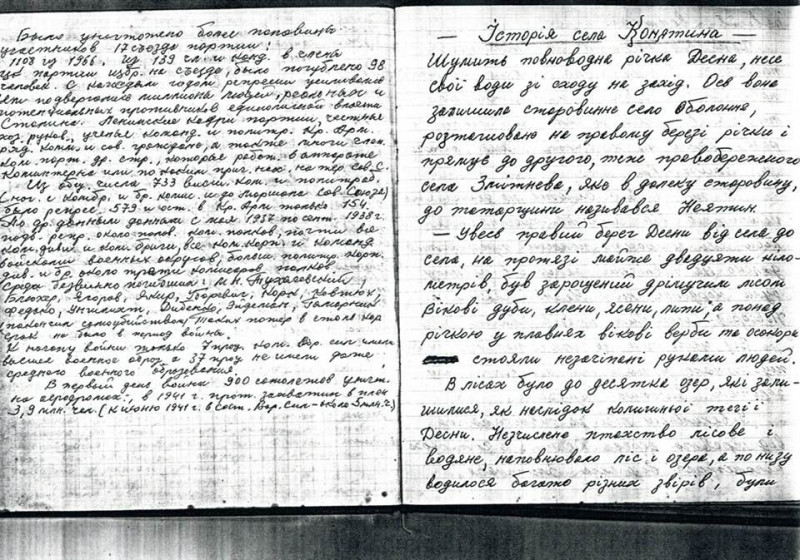 Было уничтожено более половины
участников 17 съезда партии:
1108 из 1966. Из 139 чл. и канд. в члены
ЦК партии избр. на съезде, было погублено 98
человек. С каждым годом репрессии усиливались
Они подвергались миллионы людей, реальных и
потенциальных противников единоличной власти
Сталина. Ленинские кадры партии, честные
хоз. руков., ученые команд. и политр. Кр. Арм.
ряд. комм. и сов. граждане, а также многи член.
ком. парт. др. стр., которые работ. в аппарате
Коминтерна или по каким прич. нах. на тер. сов. С.
Из общ. числа 733 высш. ком. и политраб.
(нач. с комбр. и бр. комис. и до Маршала Сов. Союза)
было репрес. 579 и ост. в Кр. Арм только 154.
По др. данным данным с мая 1937 по сент. 1938 г.
подв. репр. около полов. ком. полков, почти все
ком. дивиз. и ком. бриги, все ком. корп. и команд
войсками военных округов, больш. политр. корп.
див. и бр. около трети комисаров полков.
Среди безвинно погибших: М.Н. Тухачевский,
Блюхер, Егоров, Якир, Уборевич, Корк, Ковтюх,
Федько, Уншлихт, Дыбенко, Эйдеман, Гамарник
покончил самоубийством. Таких потер в столь кор
срок не было в период войны.
К началу войны только 7 проц. ком. Вор. сил имели
высшее военное образ. а 37 проц. не имели даже
среднего военного образования.
В первый день войны 900 самолетов уничт.
на аеродромах, в 1941 г. прот. захватил в плен
3,9 млн. чел. (К июню 1941 г. в сост. Вор. Сил – около 5 млн. ч.)
— Історія села Конятина —
Шумить повноводна річка Десна, несе
свої води зі сходу на захід. Ось вона
залишила старовинне село Оболоння,
розташовано на правому березі річки і
прямує до другого, теж правобережного
села Змітнева, яке в далеку старовину,
до татарщини називався Неятин.
— Увесь правий берег Десни від села до
села, на протязі майже двадцяти кіло-
метрів, був зарощений дрімучим лісом
Вікові дуби, клени, ясени, липи; а понад
річкою у плавнях вікові верби та осокори
стояли незачіпані руками людей.
В лісах було до десятка озер, які зали-
шилися, як наслідок колишньої течії
Десни. Незчислено птахство лісове і
водяне, наповнювало ліс і озера, а по низу
водилося багато різних звірів, були